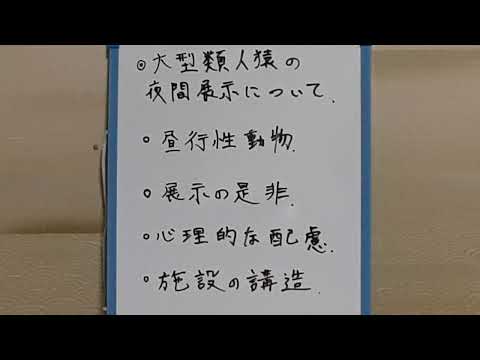 ◎大型類人猿の
夜間展示について.
○昼行性動物.
○展示の是非.
○心理的な配慮.
○施設の講造.